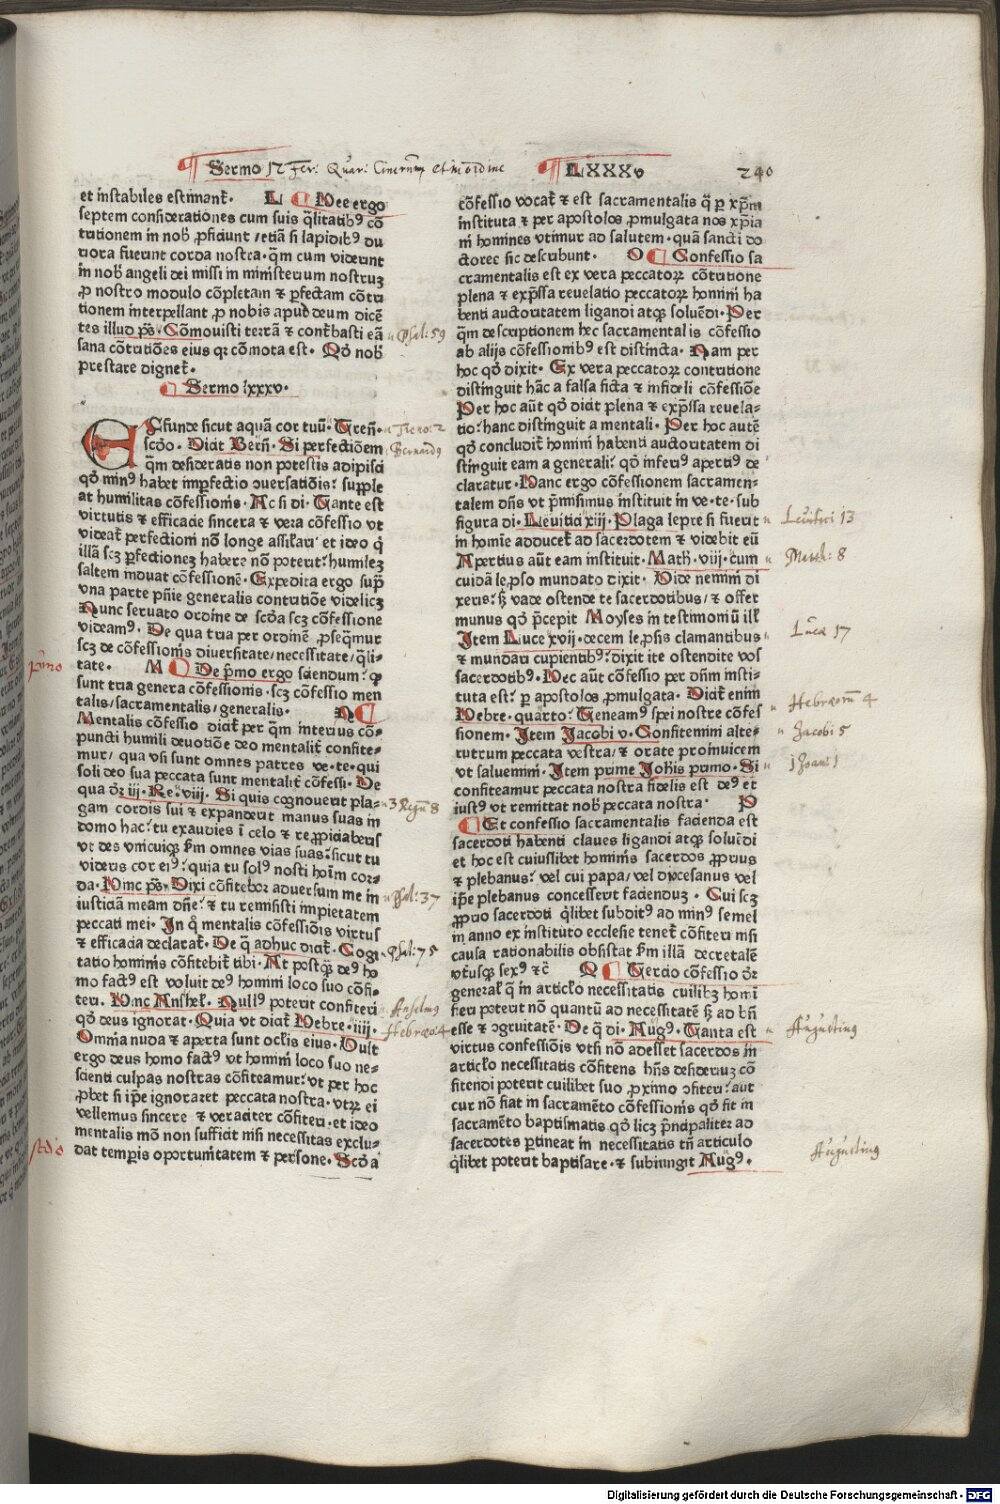 Sermo 12 Fer: Quar: Cinerum et in ordine LXXXv 240
et instabiles estimant᷒. L Hee ergo
septem consideratiões cum suis q̃litatibꝰ cõ
tritionem in nob̃ ꝓficiunt / etiã si lapidibꝰ du
riora fuerint corda nostra. qm̃ cum viderint
in nob̃ angeli dei missi in ministerium nostruꝫ
ꝓ nostro modulo cõpletam ⁊ ꝑfectam cõtri
tionem interpellant ꝓ nobis apud deum dicẽ
tes illud ps̃. Cõmouisti terrã ⁊ conturbasti eã
sana cõtritiões eius qꝛ cõmota est. Qď nob̃
prestare dignet᷒.
Sermo lxxxv.
EFfunde sicut aquã cor tuũ. Tren̄.
scďo. Dicit Bern̄. Si perfectiõem
q̃m desideratis non potestis adipisci
qď minꝰ habet imꝑfectio ↄuersatiõis: supple
at humilitas cõfessiõis. Ac si di. Tante est
virtutis ⁊ efficacie sincera ⁊ vera cõfessio vt
videat᷒ perfectioni nõ longe assilari et ideo q̇
illã scꝫ ꝑfectioneꝫ habere nõ poterit: humileꝫ
saltem induat cõfessionẽ. Expedita ergo supᷓ
vna parte pñie generalis contritiõe videlicꝫ
Nunc seruato ordine de scďa scꝫ cõfessione
videamꝰ. De qua tria per ordinẽ ꝓseq̃mur
scꝫ de cõfessiõis diuersitate / necessitate / q̃li⸗
tate. M De p̃mo ergo sciendum: ꝙ
sunt tria genera cõfessionis. scꝫ cõfessio men
talis / sacramentalis / generalis. N
Mentalis cõfessio dicit᷒ per q̃m interius cõ⸗
puncti humili deuotiõe deo mentalit᷒ confite⸗
mur / qua vsi sunt omnes patres ve. te. qui
soli deo sua peccata sunt mentalit᷒ cõfessi. De
qua dr̃ iij. Re. viij. Si quis cognouerit pla⸗
gam cordis sui ⁊ expanderit manus suas in
domo hac: tu exaudies ĩ celo ⁊ repropiciaberis
vt des vnicuiqꝫ ẜm omnes vias suas: sicut tu
videris cor eiꝰ: quia tu solꝰ nosti hoĩm cor⸗
da. Hinc ps̃. Dixi cõfitebor aduersum me in
iusticiã meam dñe: ⁊ tu remisisti impietatem
peccati mei. In q̇ mentalis cõfessiõis virtus
⁊ efficacia declarat᷒. De q̃ adhuc dicit᷒. Cogi
tatio hominis cõfitebit᷒ tibi. At postq̃ꝫ deꝰ ho
mo factꝰ est voluit deꝰ homini loco suo cõfi⸗
teri. Hinc Anshel᷒. Nullꝰ poterit confiteri
qď deus ignorat. Quia vt dicit᷒ Hebre. iiij.
Omnia nuda ⁊ aperta sunt oculis eius. Vult
ergo deus homo factꝰ vt homini loco suo ne⸗
scienti culpas nostras cõfiteamur: vt per hoc
ꝓbet si ip̃e ignoraret peccata nostra. vtꝝ ei
vellemus sincere ⁊ veraciter cõfiteri. et ideo
mentalis mõ non sufficit nisi necessitas exclu⸗
dat temꝑis oportunitatem ⁊ persone. Scďa
p̃mo
scdo
Psal: 59
Tieros: 2
Bernardꝰ
3 Regũ 8
Psal: 37
Psal: 75
Anselmꝰ
Hebræ: 4
cõfessio vocat᷒ ⁊ est sacramentalis q̃ ꝑ xp̃m
instituta ⁊ per apostolos ꝓmulgata nos xp̃ia
ni homines vtimur ad salutem. quã sancti do
ctorec sic describunt. O Confessio sa
cramentalis est ex vera peccatoꝝ cõtritione
plena ⁊ exp̃ssa reuelatio peccatoꝝ homini ha
benti auctoritatem ligandi atqꝫ soluẽdi. Per
q̃m descriptionem hec sacramentalis cõfessio
ab alijs cõfessionibꝰ est distincta. Nam per
hoc qď dixit. Ex vera peccatoꝝ contritione
distinguit hãc a falsa ficta ⁊ infideli cõfessiõe
Per hoc aũt qď dicit plena ⁊ exp̃ssa reuela⸗
tio: hanc distinguit a mentali. Per hoc autẽ
qď concludit᷒ homini habenti auctoritatem di
stinguit eam a generali: qď inferiꝰ apertiꝰ de
claratur. Hanc ergo cõfessionem sacramen⸗
talem dñs vt p̃missimus instituit in ve. te. sub
figura di. Leuitici xiij. Plaga lepre si fuerit
in homie adducet᷒ ad sacerdotem ⁊ videbit eũ
Apertius aũt eam instituit. Math. viij. cum
cuidã leꝓso mundato dixit. Vide nemini di
xeris: sꝫ vade ostende te sacerdotibus / ⁊ offer
munus qď p̃cepit Moyses in testimoniũ ill᷒
Item Luce xvij. decem leꝓsis clamantibus
⁊ mundari cupientibꝰ: dixit ite ostendite vos
sacerdotibꝰ. Hec aũt cõfessio per dñm insti⸗
tuta est: ꝑ apostolos ꝓmulgata. Dicit᷒ enim
Hebre. quarto: Teneamꝰ spei nostre cõfes
sionem. Item Jacobi v. Confitemini alte⸗
rutrum peccata vestra / ⁊ orate proinuicem
vt saluemini. Item prime Joh̃is primo. Si
confiteamur peccata nostra fidelis est deꝰ et
iustꝰ vt remittat nob̃ peccata nostra. P
Et confessio sacramentalis facienda est
sacerdoti habenti claues ligandi atqꝫ soluẽdi
et hoc est cuiuslibet hominis sacerdos ꝓprius
⁊ plebanus: vel cui papa / vel diocesanus vel
ip̃e plebanus concesserit faciendũꝫ. Cui scꝫ
ꝓprio sacerdoti q̃libet subditꝰ ad minꝰ semel
in anno ex instituto ecclesie tenet᷒ cõfiteri nisi
causa rationabilis obsistat ẜm illã decretalẽ
vtriusqꝫ sexꝰ ⁊c̃ Q Tercio cõfessio dr̃
general᷒ q̃ in articl᷒o necessitatis cuilibꝫ homĩ
fieri poterit nõ quantũ ad necessitatẽ sꝫ ad bñ
esse ⁊ ↄgruitatẽ. De q̃ di. Augꝰ. Tanta est
virtus confessiõis vt si nõ adesset sacerdos in
articl᷒o necessitatis cõfitens hñs desideriuꝫ cõ
fitendi poterit cuilibet suo ꝓximo ↄfiteri: aut
cur nõ fiat in sacramẽto cõfessionis qď fit in
sacramẽto baptismatis qď licꝫ p̃ncipaliteꝛ ad
sacerdotes ꝑtineat in necessitatis tñ articulo
q̃libet poterit baptisare. ⁊ subiungit Augꝰ.
Leuitici 13
Matth: 8
Lucæ 17
Hebræorũ 4
Jacobi 5
1 Joan: 1
Augustinꝰ
Augustinꝰ
Digitalisierung gefördert durch die Deutsche Forschungsgemeinschaft - DFG